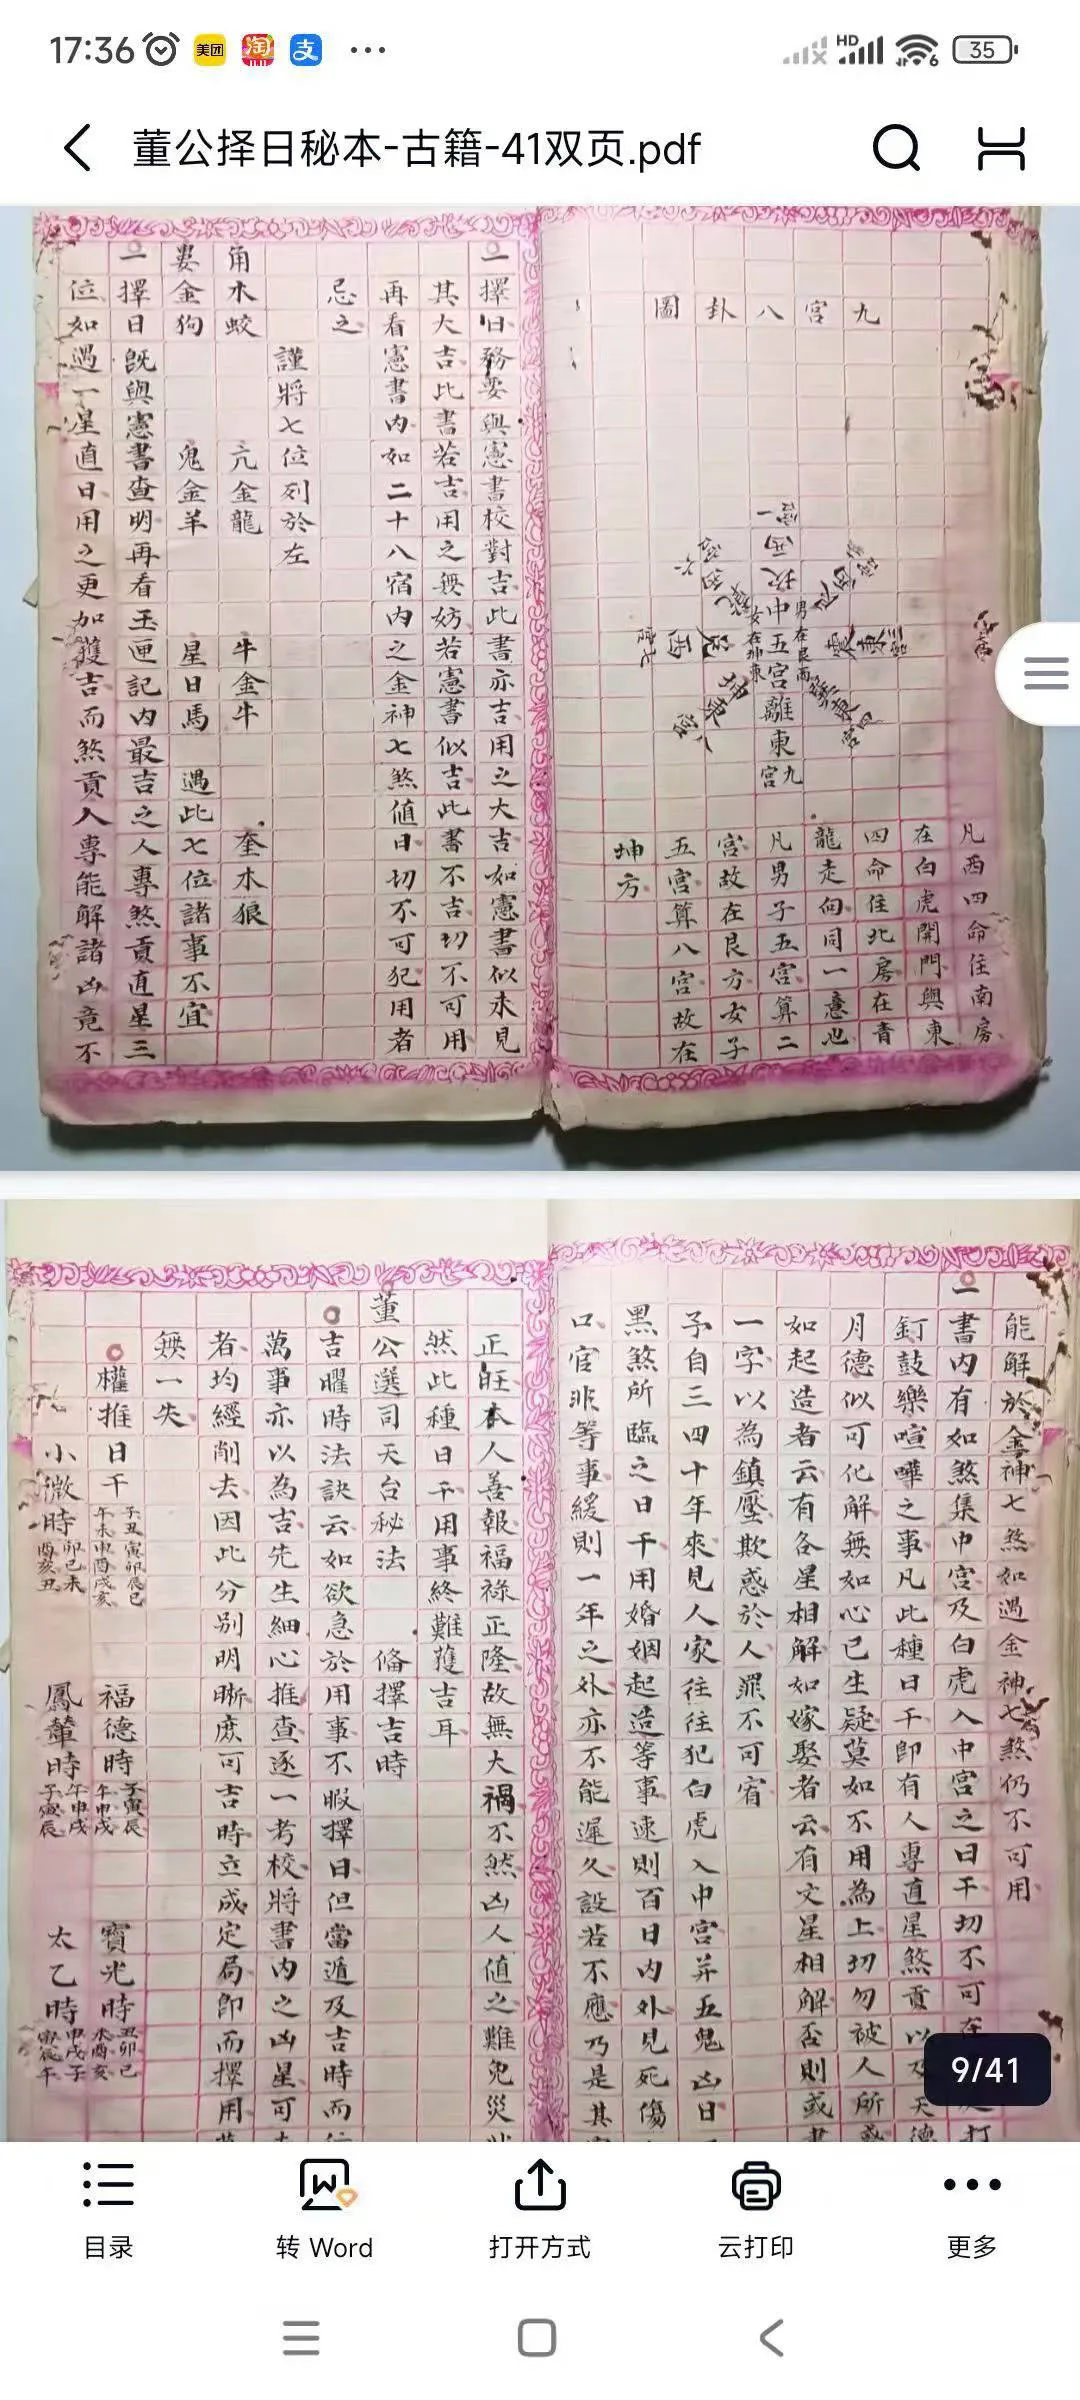 17:36
美团
淘
支
HD
6
35
董公择日秘本-古籍-41双页.pdf
九宮八卦圖
一宮
坎
中五宮
男在艮南
女在坤東
離東
九宮
凡西四命住南房
在白虎開門與東
四命住北房在青
龍走向同一意也
凡男子五宮算二
宮故在艮方女子
五宮算八宮故在
坤方
一擇日務要與憲書校對吉此書亦吉用之大吉如憲書似未見
其大吉此書若吉用之無妨若憲書似吉此書不吉切不可用
再看憲書内如二十八宿内之金神七煞值日切不可犯用者
忌之
謹將七位列於左
角木蛟 亢金龍 牛金牛 奎木狼
婁金狗 鬼金羊 星日馬 遇此七位諸事不宜
一擇日既與憲書查明再看玉匣記内最吉之人專煞貢直星三
位如遇一星直日用之更加獲吉而煞貢人專能解諸凶竟不
能解於金神七煞如遇金神七煞仍不可用
一書内有如煞集中宮及白虎入中宮之日干切不可在
釘鼓樂喧嘩之事凡此種日干即有人專直星煞貢以及天德
月德似可化解無如心已生疑莫如不用為上切勿被人所惑
如起造者云有各星相解如嫁娶者云有文星相解否則或書
一字以為鎮壓欺惑於人罪不可宥
予自三四十年來見人家往往犯白虎入中宮并五鬼凶日
黑煞所臨之日干用婚姻起造等事速則百日内外見死傷
口官非等事緩則一年之外亦不能遲久設若不應乃是其
正旺本人善報福祿正隆故無大禍不然凶人值之難免災
然此種日干用事終難獲吉耳
董公選司天台秘法 俻擇吉時
吉曜時法訣云如欲急於用事不暇擇日但當遁及吉時而
萬事亦以為吉先生細心推查逐一考校將書内之凶星可
者均經削去因此分别明晰庶可吉時立成定局即而擇用
無一失
權推日干 子丑寅卯辰巳 午未申酉戌亥 福德時 子寅辰 午申戌 寶光時 丑卯巳 未酉亥
小微時 卯巳未 酉亥丑 鳳輦時 午申戌 子寅辰 太乙時 申戌子 寅辰午
9/41
目录
转 Word
打开方式
云打印
更多